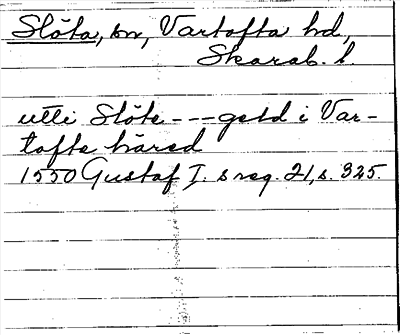 Slöta, sn, Vartofta hd,
Skarab. l.
utti Slöte --- geld i Var-
tofte härad
1550 Gustaf I. s reg. 21, s. 325.